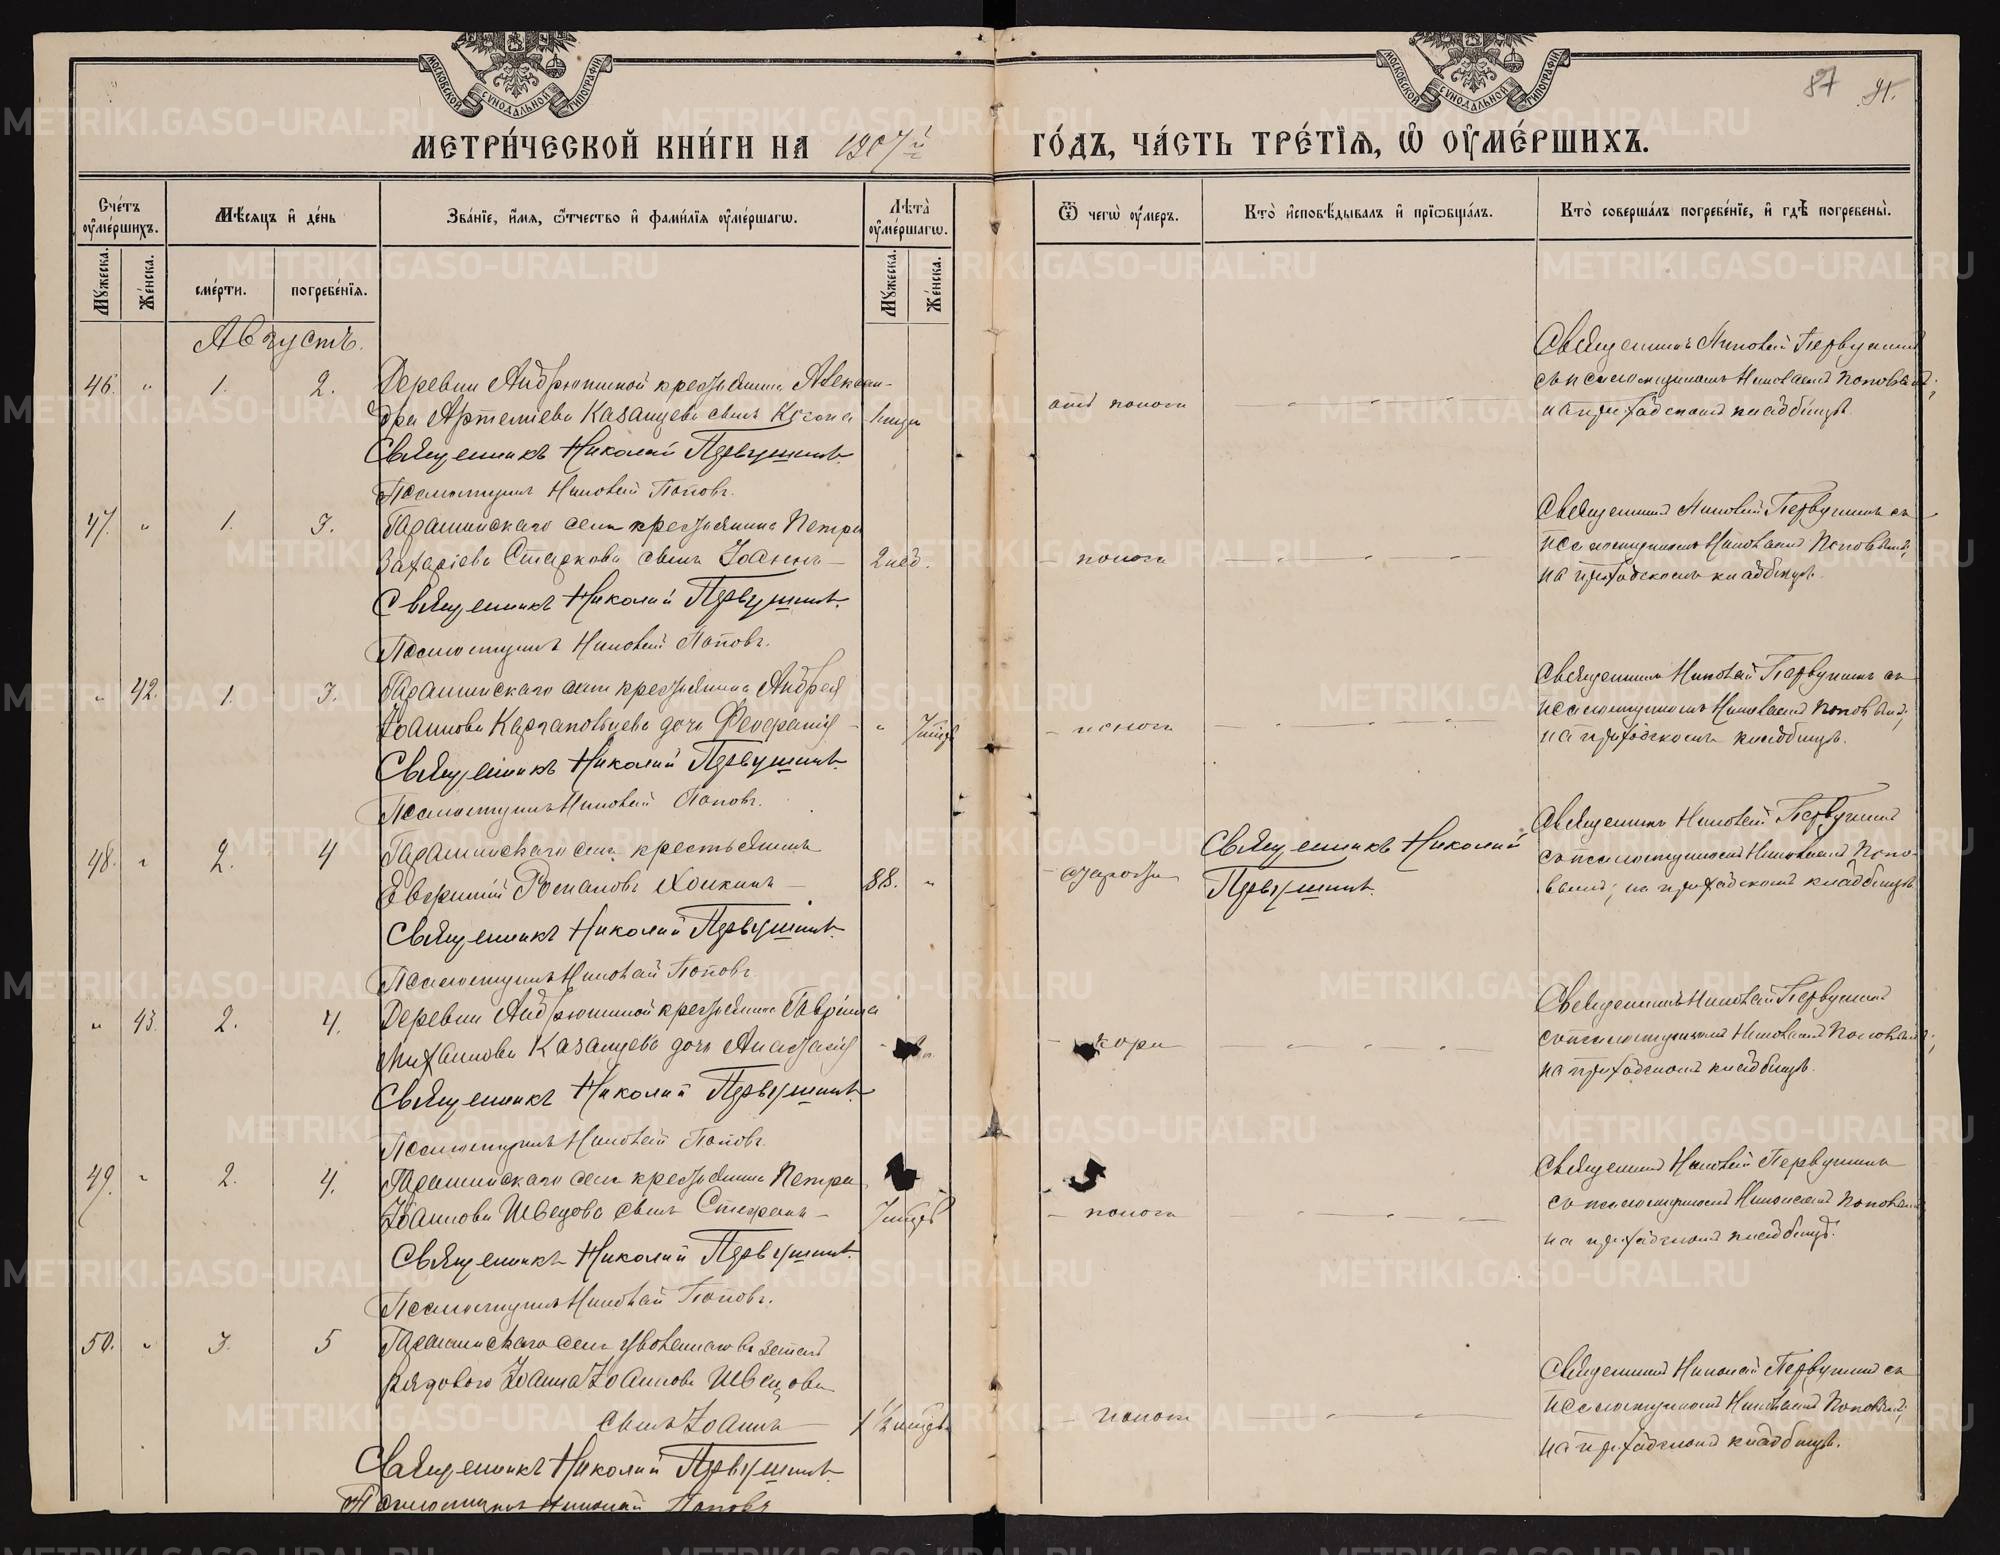 МОСКОВСКОЙ СѴНОДАЛЬНОЙ ТИПОГРАФІИ
МОСКОВСКОЙ СѴНОДАЛЬНОЙ ТИПОГРАФІИ
87 91.
МЕТРИ́ЧЕСКОЙ КНИ́ГИ НА 1907й ГО́ДЪ, ЧА́СТЬ ТРЕ́ТІѦ, Ѽ ОУ҆МЕ́РШИХЪ.
Сче́тъ оу҆ме́ршихъ.
Мѣ́сяцъ и҆ де́нь
Зва́ніе, и҆́мя, ѻ҆́тчество и҆ фами́лія оу҆ме́ршагѡ.
Лѣ́та оу҆ме́ршагѡ.
Ѿ чегѡ̀ оу҆́меръ.
Кто̀ и҆сповѣ́дывалъ и҆ прїѡбща́лъ.
Кто̀ соверша́лъ погребе́ніе, и҆ гдѣ̀ погребены̀.
Мꙋ́жеска.
Же́нска.
сме́рти.
погребе́нїя.
Мꙋ́жеска.
Же́нска.
Августъ.
46. " 1. 2. Деревни Андрюшиной крестьянина Алексан-
дра Артемьева Казанцева сынъ
Священникъ Николай Первушинъ
Псаломщикъ Николай Поповъ.
отъ поноса
Священникъ Николай Первушинъ
съ псаломщикомъ Николаемъ Поповымъ;
на приходскомъ кладбищѣ.
47. " 1. 3. Гарашинскаго села крестьянина Петра
Захаріева Старкова сынъ Іоаннъ — 2 нед.
Священникъ Николай Первушинъ.
Псаломщикъ Николай Поповъ.
— поноса
Священникъ Николай Первушинъ съ
псаломщикомъ Николаемъ Поповымъ;
на приходскомъ кладбищѣ.
" 42. 1. 3. Гарашинскаго села крестьянина Андрея
Іоаннова дочь —
Священникъ Николай Первушинъ
Псаломщикъ Николай Поповъ.
— поноса
Священникъ Николай Первушинъ съ
псаломщикомъ Николаемъ Поповымъ;
на приходскомъ кладбищѣ.
48. " 2. 4 Гарашинскаго села крестьянинъ
Романовъ — 88. "
Священникъ Николай Первушинъ
Псаломщикъ Николай Поповъ
— старости
Священникъ Николай
Первушинъ.
Священникъ Николай Первушинъ
съ псаломщикомъ Николаемъ Попо-
вымъ; на приходскомъ кладбищѣ
" 43. 2. 4. Деревни Андрюшиной крестьянина Гавріила
Михаилова Казанцева дочь Анастасія
Священникъ Николай Первушинъ
Псаломщикъ Николай Поповъ.
— кори
Священникъ Николай Первушинъ
съ псаломщикомъ Николаемъ Поповымъ;
на приходскомъ кладбищѣ.
49. " 2. 4. Гарашинскаго села крестьянина Петра
Іоаннова Швецова сынъ Стефанъ —
Священникъ Николай Первушинъ.
Псаломщикъ Николай Поповъ.
— поноса
Священникъ Николай Первушинъ
съ псаломщикомъ Николаемъ Поповымъ
на приходскомъ кладбищѣ.
50. " 3. 5 Гарашинскаго села уволеннаго въ запасъ
рядового Іоанна Іоаннова Швецова
сынъ Іоаннъ —
Священникъ Николай Первушинъ.
Псаломщикъ Николай Поповъ
— поноса
Священникъ Николай Первушинъ съ
псаломщикомъ Николаемъ Поповымъ;
на приходскомъ кладбищѣ.
METRIKI.GASO-URAL.RU